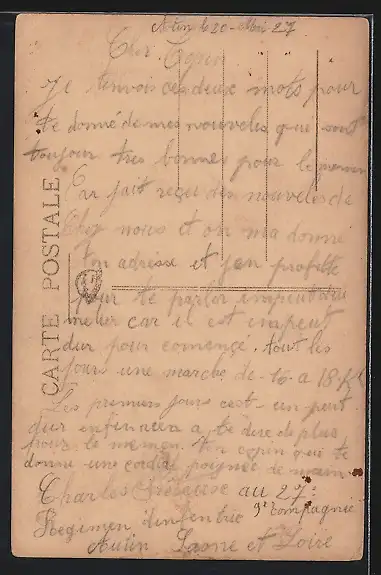 Autin le 20 Mai 27
Cher Copin
Je tenvois ces deux mots pour
te donné de mes nouveles qui sont
toujour tres bonnes pour le momen
Car jait reçu des nouveles de
Chez nous et on ma donné
ton adresse et jen profette
pour te parler unpeut du
metier car il est unpeut
dur pour comencé. tout les
jours une marche de 16 a 18 K
Les premiers jours c'est un peut
dur enfin a te dire de plus
pour le momen. ton copin qui te
donne une cordial poignee de main
Charles au 27e
Regimen dinfentrie 9e Compagnie
Autin Saone et Loire
CARTE POSTALE